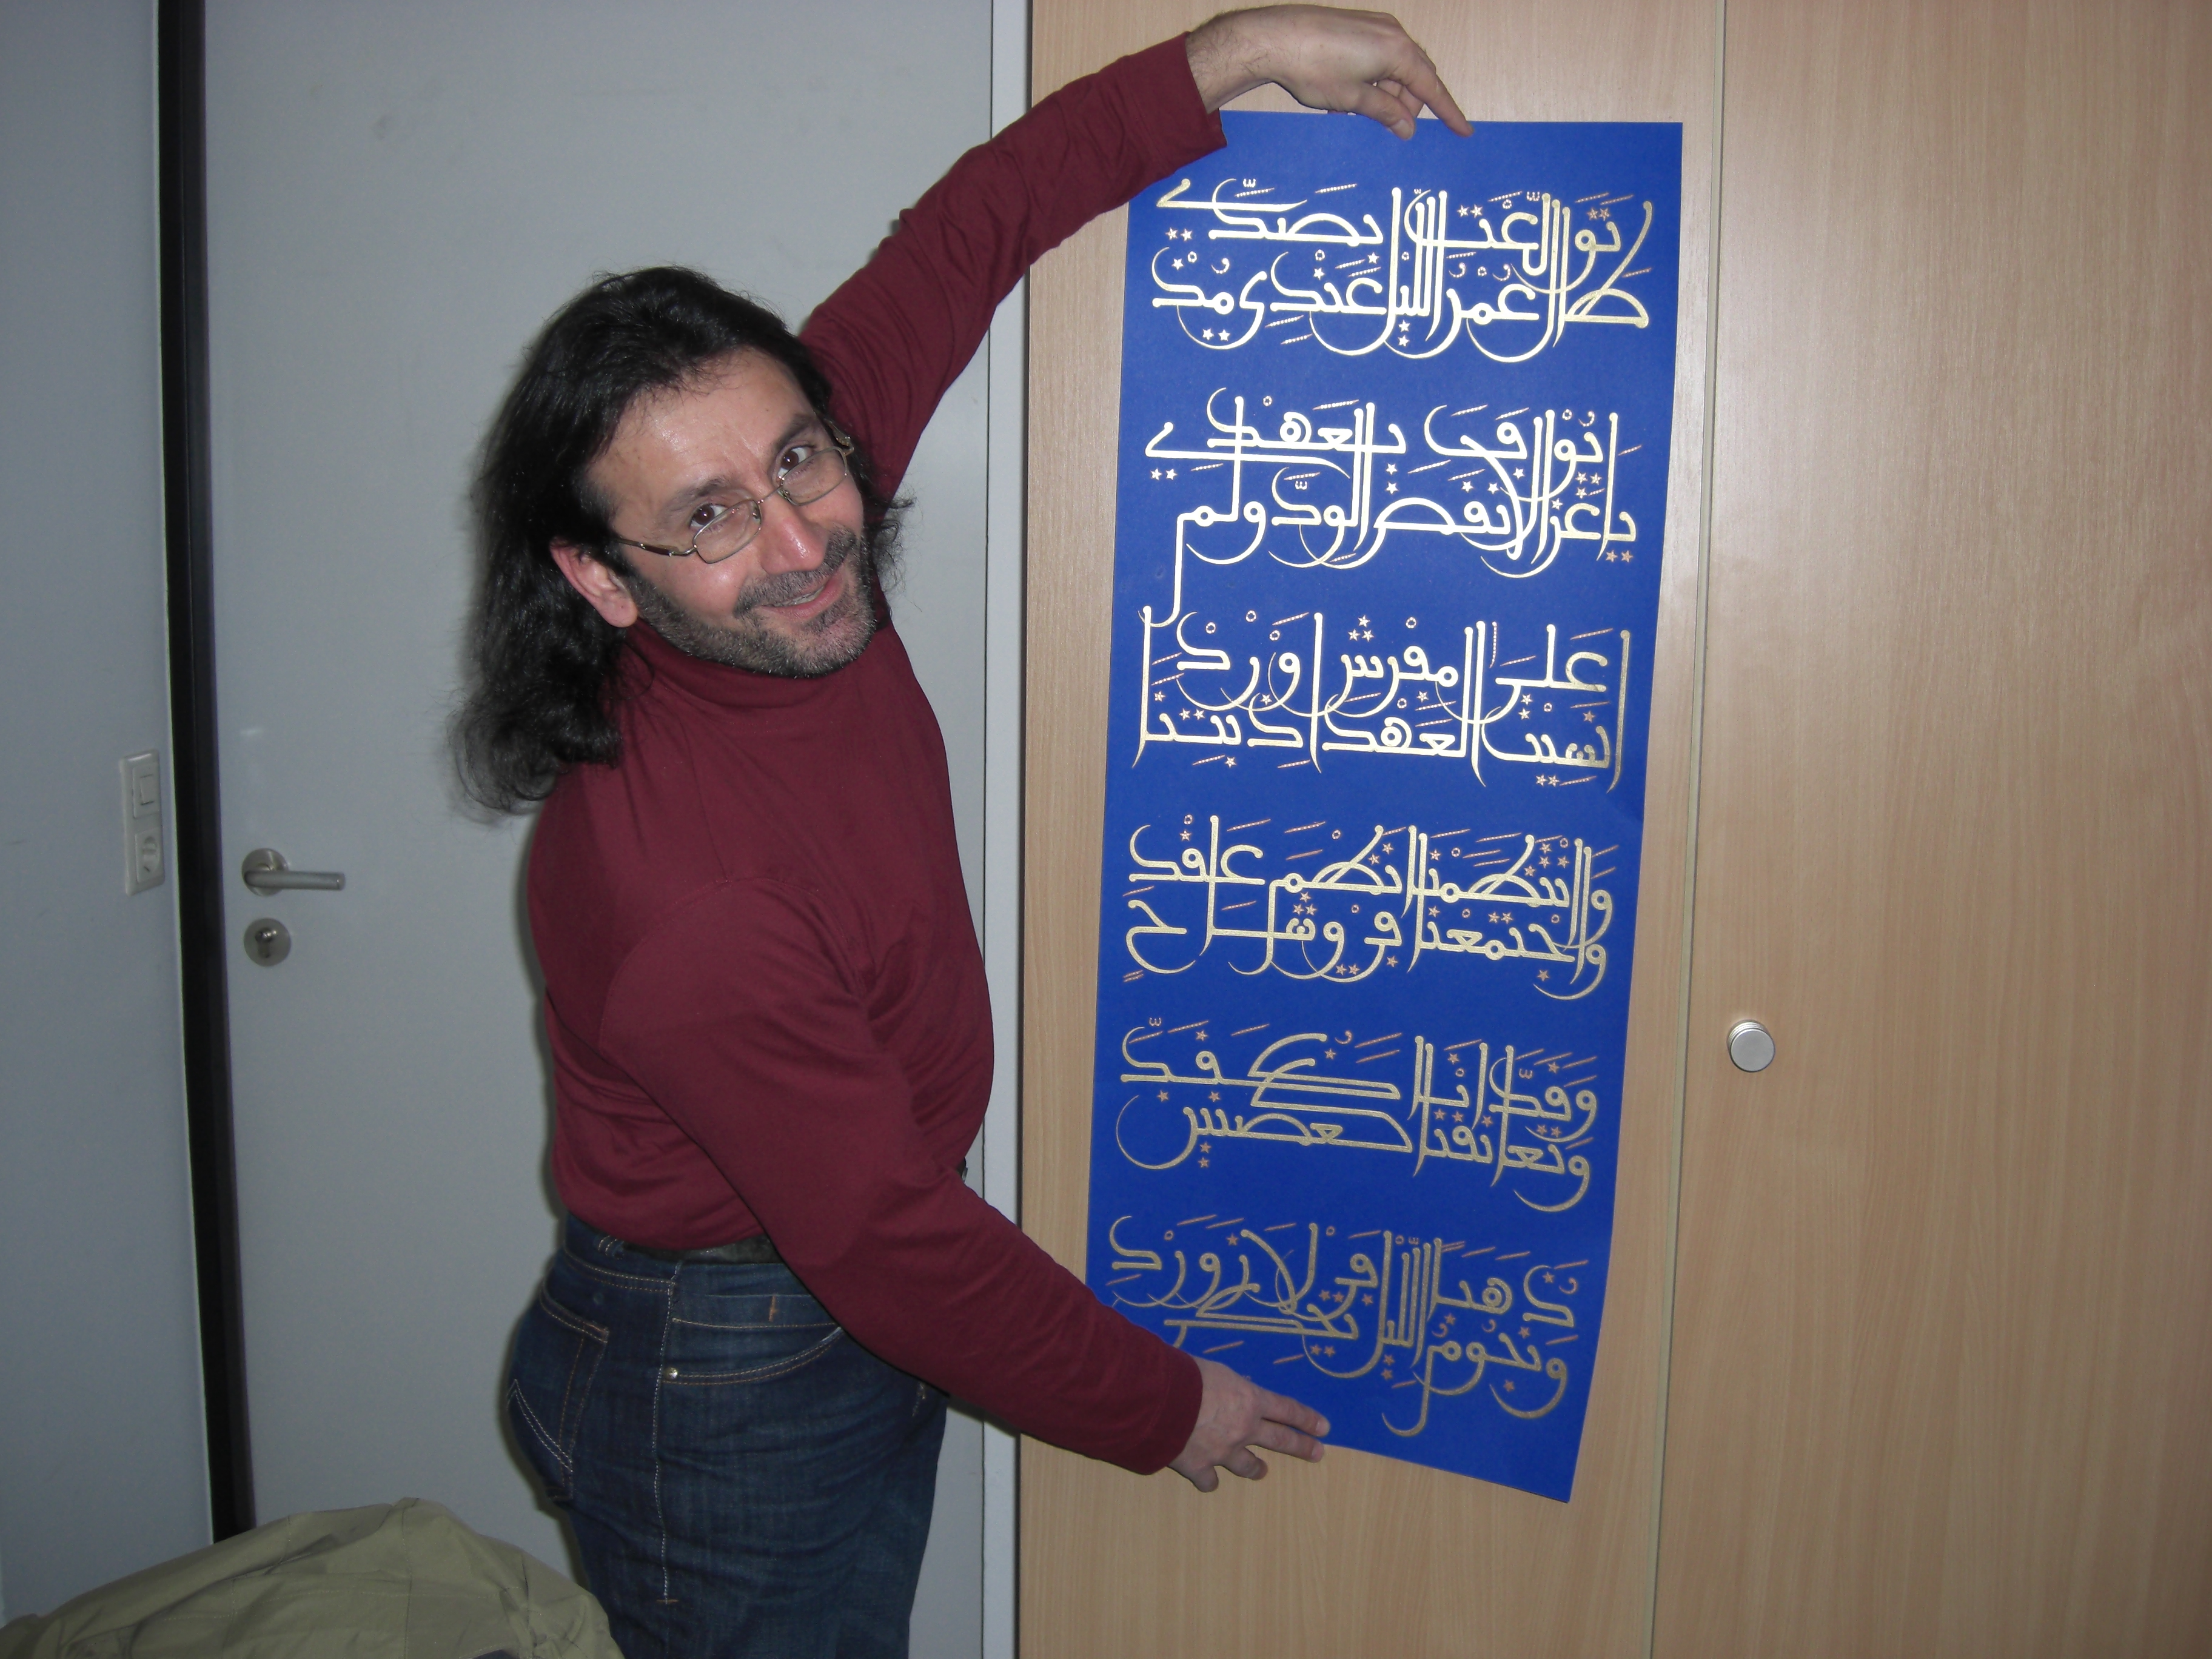 طَالَ عُمْرُ اللَّيْلِ عِنْدِي مُذْ
تَوَلَّعْتَ بِصَدِّي
يَا غَزَالًا نَقَضَ الوُدَّ وَلَمْ
يُوفِ بِعَهْدِي
أَنَسِيتَ العَهْدَ إِذْ بِتْنَا
عَلَى مَفْرَشِ وَرْدِ
وَاجْتَمَعْنَا فِي وِشَاحٍ
وَانْتَظَمْنَا نَظْمَ عِقْدِ
وَتَعَانَقْنَا كَغُصْنَيْنِ
وَقَدَّانَا كَقَدِّ
وَنُجُومُ اللَّيْلِ تَحْكِي
ذَهَبًا فِي لَازَوَرْدِ